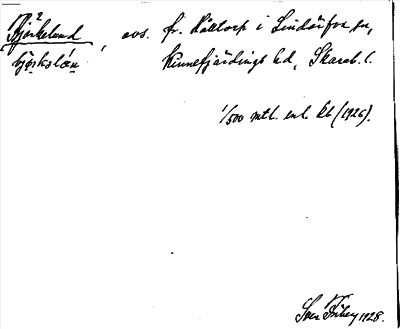 Björkelund², avs. fr. Källtorp i Lindärfva sn,
björkslön Kinnefjärdings hd, Skarab. l.
1/500 mtl. enl. kb (1926).
Sven Friberg 1928.